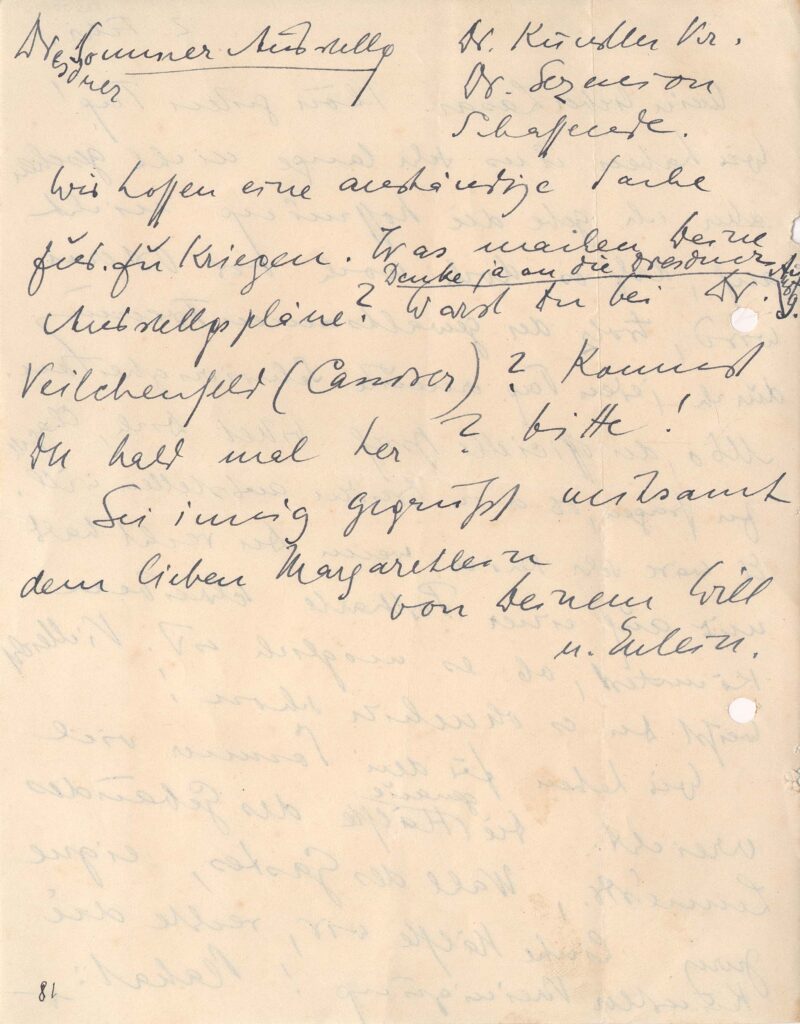 Dresdner Sommer Ausstellg
Dr. Künstler Ver.
Dr. Sezession
Schaffende.
Wir hoffen eine anständige Sache
zus. zu kriegen. Was machen Deine
Denke ja an die Dresdner Ausstllg.
Ausstellgspläne? Warst Du bei Dr.
Veilchenfeld (Cassirer)? Kommst
Du bald mal her? bitte!
Sei innig gegrüßt mitsamt
dem lieben Margaretlein
von Deinem Will
u. Eulein.
81